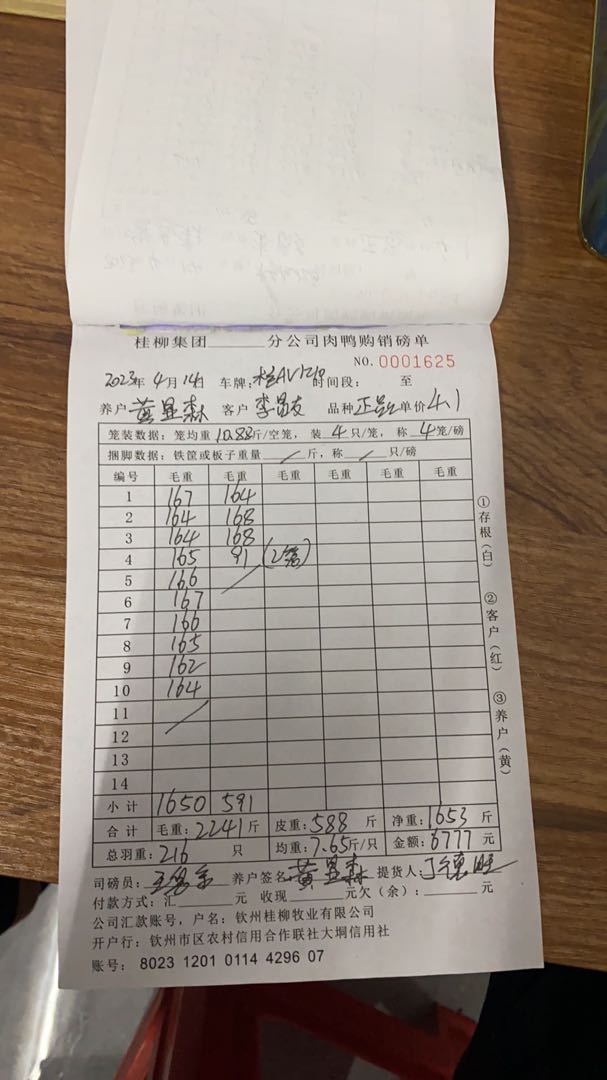 桂柳集团 分公司肉鸭购销磅单
NO.0001625
2023年 4月 14日 车牌: 时间段: 至
养户 黄显森 客户 李昌友 品种 单价 4.1
笼装数据：笼均重 10.88斤/空笼，装 4 只/笼，称 4笼/磅
捆脚数据：铁筐或板子重量 / 斤，称 / 只/磅
编号 毛重 毛重 毛重 毛重 毛重 毛重
1 167 164
2 164 168
3 164 168
4 165 91 (2笼)
5 166
6 167
7 166
8 165
9 162
10 164
11
12
13
14
小计 1650 591
合计 毛重: 2241 斤 皮重: 588 斤 净重: 1653 斤
总羽重: 216 只 均重: 7.65斤/只 金额: 6777 元
司磅员: 养户签名 黄显森 提货人: 丁德旺
付款方式: 汇 元 收现 元欠（余）: 元
公司汇款账号，户名：钦州桂柳牧业有限公司
开户行：钦州市区农村信用合作联社大垌信用社
账号： 8023 1201 0114 4296 07
①存根（白）
②客户（红）
③养户（黄）